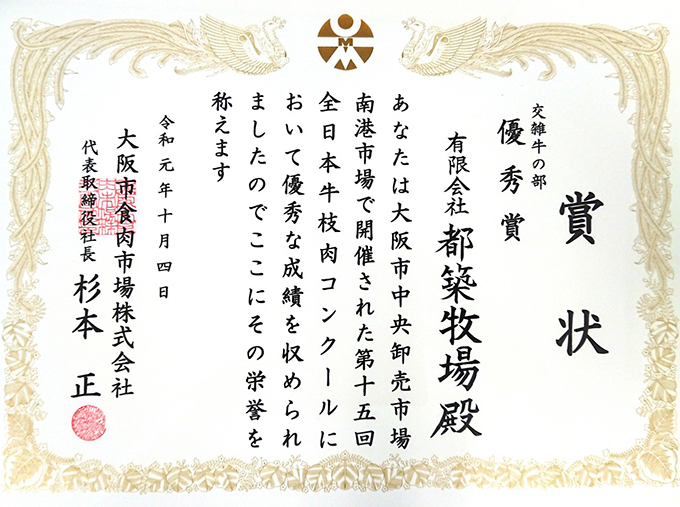 賞状
交雑牛の部
優秀賞
有限会社 都築牧場殿
あなたは大阪市中央卸売市場
南港市場で開催された第十五回
全日本牛枝肉コンクールに
おいて優秀な成績を収められ
ましたのでここにその栄誉を
称えます
令和元年十月四日
大阪市食肉市場株式会社
代表取締役社長 杉本 正